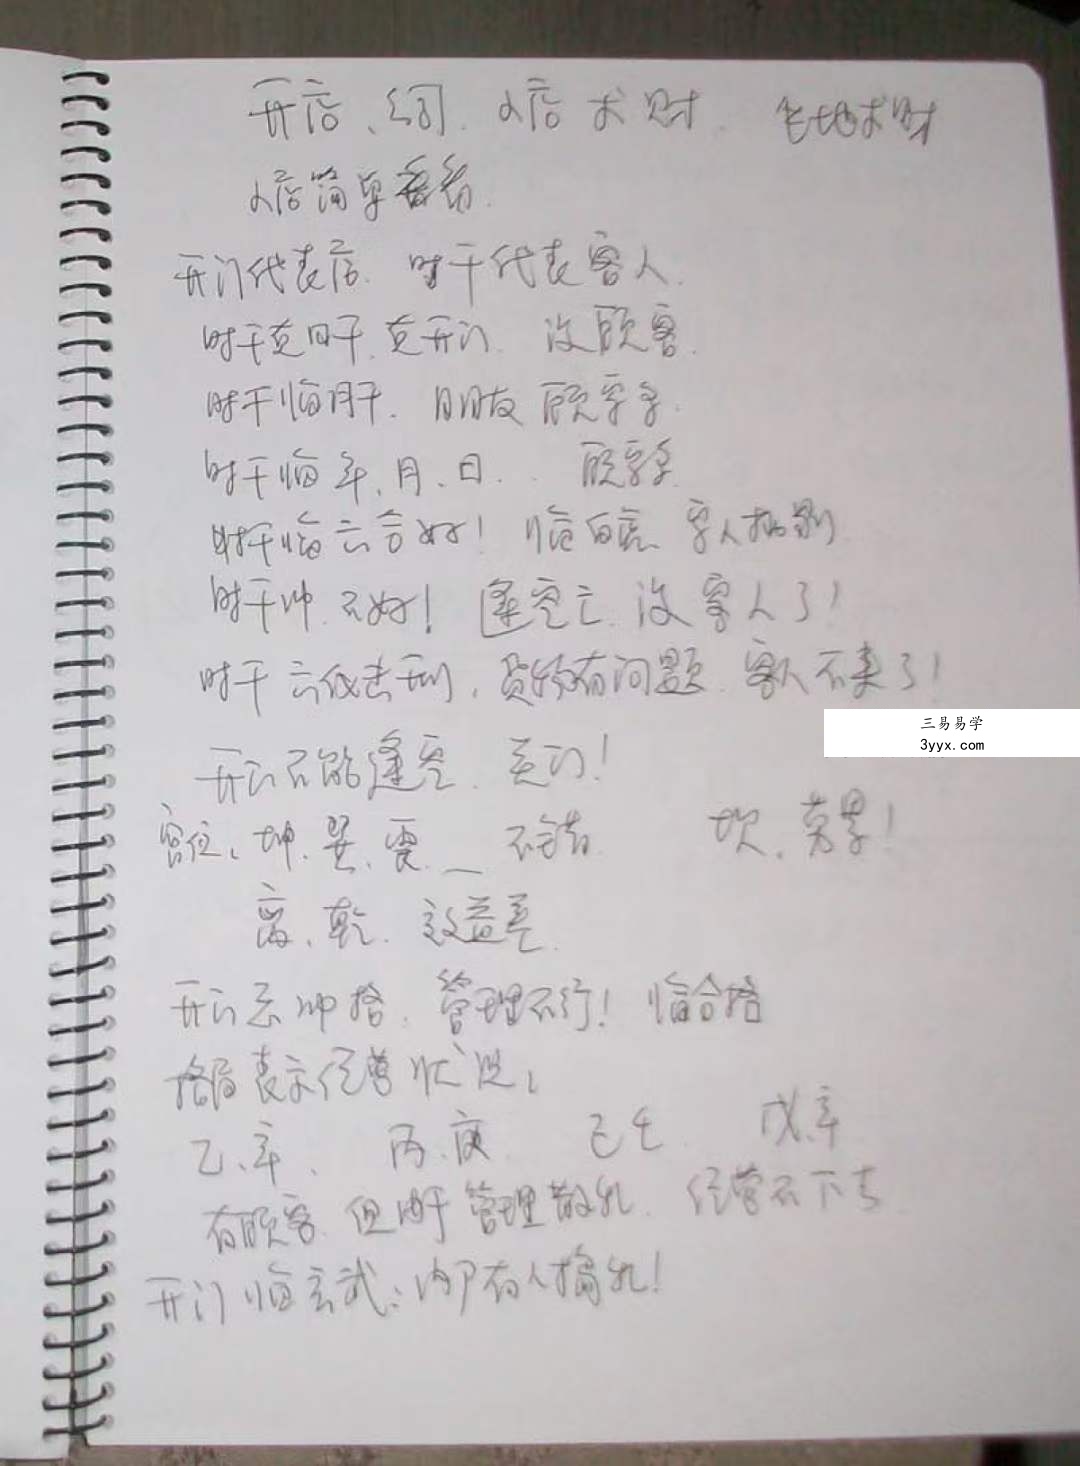 开店、公司、人店求财 它地求财
人店简单看看.
开门代表店. 时干代表客人.
时干克日干.克开门. 没顾客.
时干临月干. 朋友顾客多.
时干临年、月、日.. 顾客多
时干临六合好! 临白虎 客人挑剔
时干冲.不好! 逢空亡.没客人了!
时干六仪击刑,货物有问题.客人不来了!
三易易学
3yyx.com
开门不能逢空.关门!
宫位: 坤.巽.震. 不错. 坎.劳累!
离、乾. 效益差.
开门忌冲格. 管理不行! 临合格
格局表示经营状况:
乙、辛、 丙、庚. 己壬. 戊.辛
有顾客.但由于管理散乱.经营不下去.
开门临玄武:内部有人搞乱!